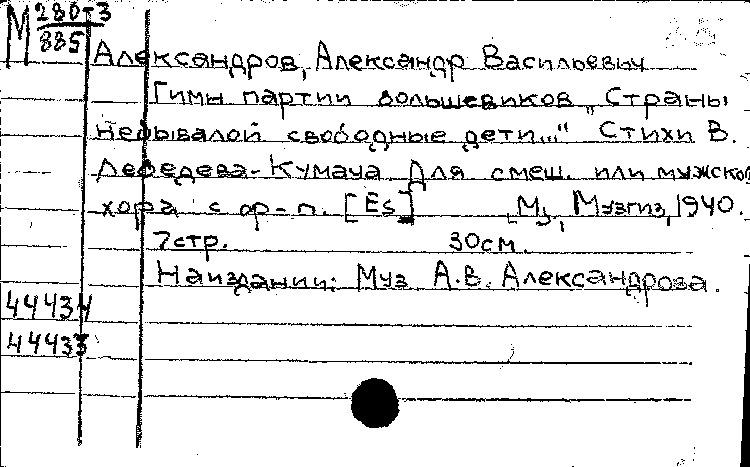 М 280-3
885
Александров, Александр Васильевич
Гимн партии большевиков „Страны
небывалой свободные дети..." Стихи В.
Лебедева-Кумача Для смеш. или мужског
хора с ф-п. [Es] М., Музгиз, 1940.
7стр. 30см.
На издании: Муз А.В. Александрова.
44434
44433